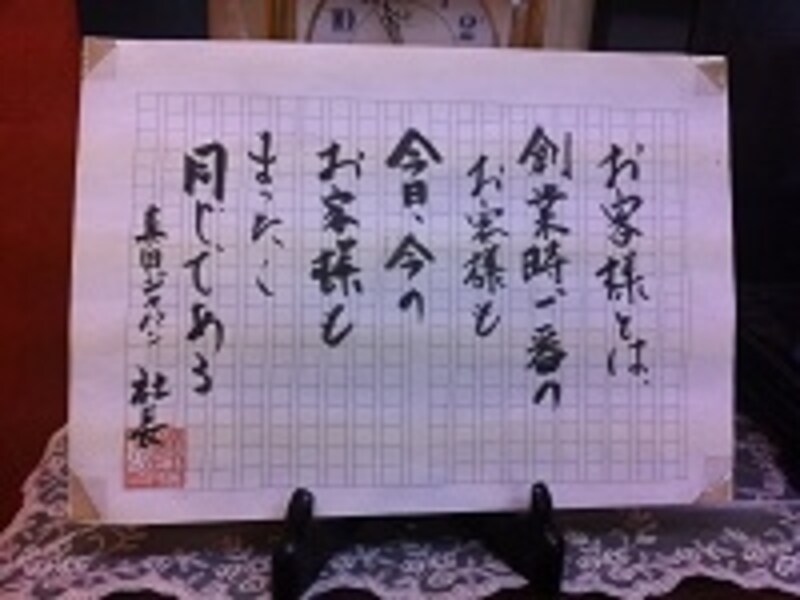 お客様とは、
創業時一番の
お客様も
今日、今の
お客様も
まったく
同じである
真田ジャパン 社長
10